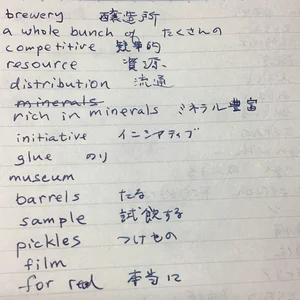 brewery 醸造所
a whole bunch of たくさんの
competitive 競争的
resource 資源
distribution 流通
minerals
rich in minerals ミネラル豊富
initiative イニシアティブ
glue のり
museum
barrels たる
sample 試飲する
pickles つけもの
film
for real 本当に